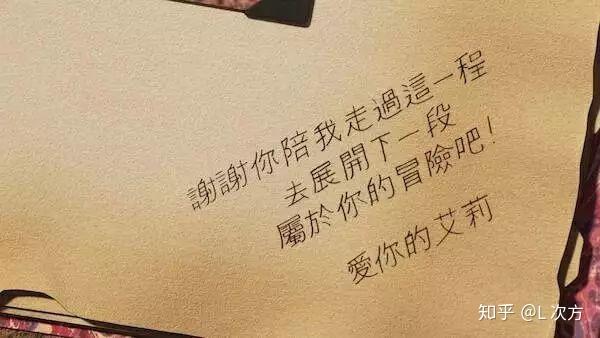 謝謝你陪我走過這一程
去展開下一段
屬於你的冒險吧!
愛你的艾莉
知乎 @L 次方